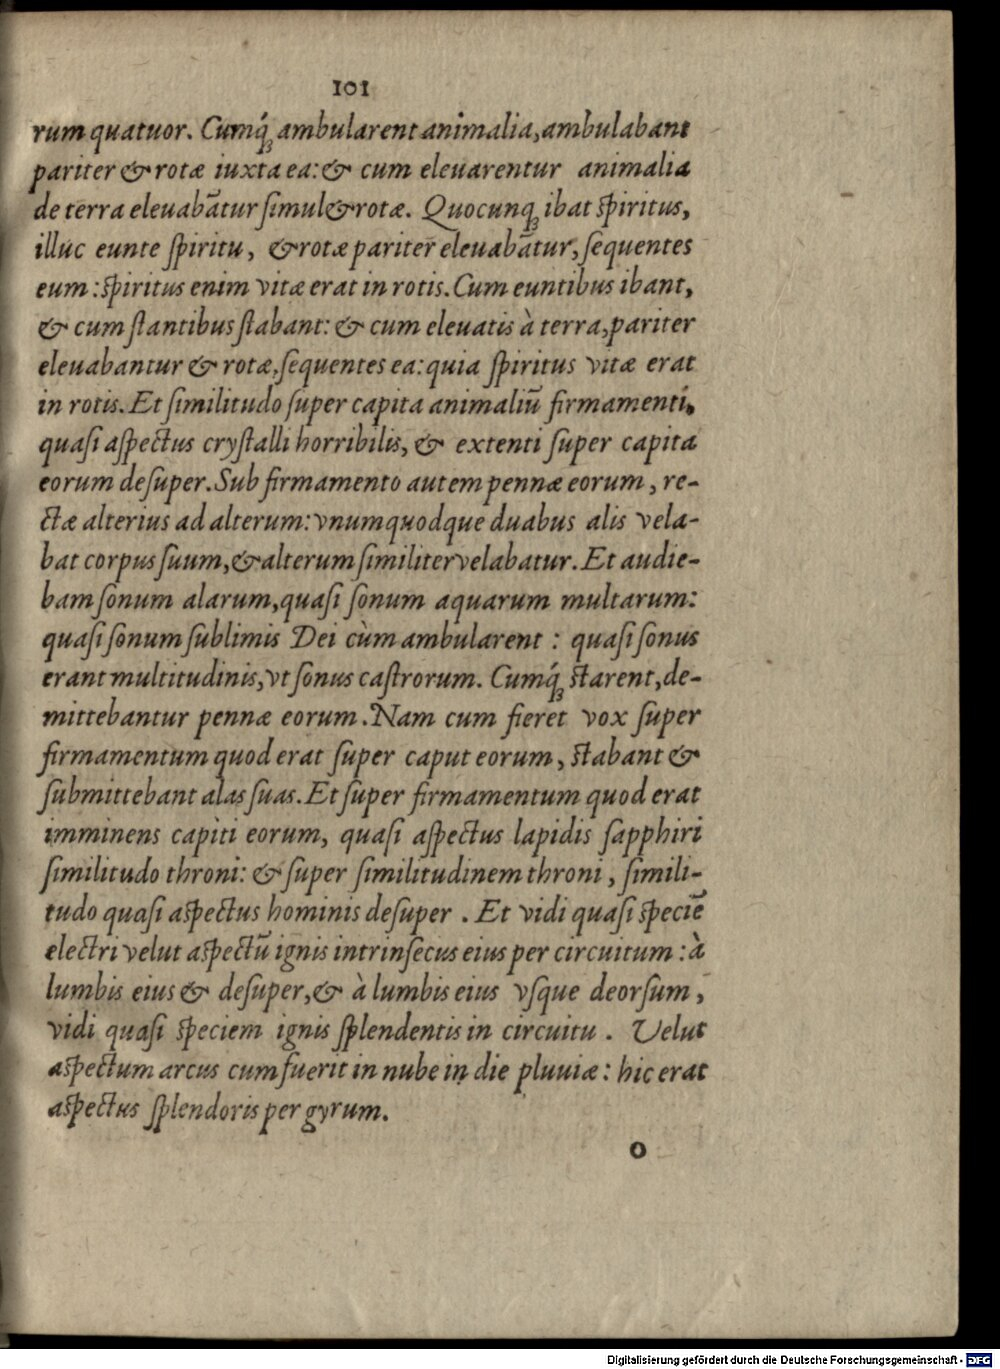 101
rum quatuor. Cumq́ꝫ ambularent animalia, ambulabant
pariter & rotæ iuxta ea: & cum eleuarentur animalia
de terra eleuabãtur ſimul & rotæ. Quocunqꝫ ibat ſpiritus,
illuc eunte ſpiritu, & rotæ pariter eleuabãtur, ſequentes
eum: ſpiritus enim vitæ erat in rotis. Cum euntibus ibant,
& cum ſtantibus ſtabant: & cum eleuatis à terra, pariter
eleuabantur & rotæ, ſequentes ea: quia ſpiritus vitæ erat
in rotis. Et ſimilitudo ſuper capita animaliũ firmamenti,
quaſi aſpectus cryſtalli horribilis, & extenti ſuper capita
eorum deſuper. Sub firmamento autem pennæ eorum, re-
ctæ alterius ad alterum: vnumquodque duabus alis vela-
bat corpus ſuum, & alterum ſimiliter velabatur. Et audie-
bam ſonum alarum, quaſi ſonum aquarum multarum:
quaſi ſonum ſublimis Dei cùm ambularent: quaſi ſonus
erant multitudinis, vt ſonus caſtrorum. Cumq́ꝫ ſtarent, de-
mittebantur pennæ eorum. Nam cum fieret vox ſuper
firmamentum quod erat ſuper caput eorum, ſtabant &
ſubmittebant alas ſuas. Et ſuper firmamentum quod erat
imminens capiti eorum, quaſi aſpectus lapidis ſapphiri
ſimilitudo throni: & ſuper ſimilitudinem throni, ſimili-
tudo quaſi aſpectus hominis deſuper. Et vidi quaſi ſpeciẽ
electri velut aſpectũ ignis intrinſecus eius per circuitum: à
lumbis eius & deſuper, & à lumbis eius vſque deorſum,
vidi quaſi ſpeciem ignis ſplendentis in circuitu. Velut
aſpectum arcus cum fuerit in nube in die pluuiæ: hic erat
aſpectus ſplendoris per gyrum.
o
Digitalisierung gefördert durch die Deutsche Forschungsgemeinschaft - DFG